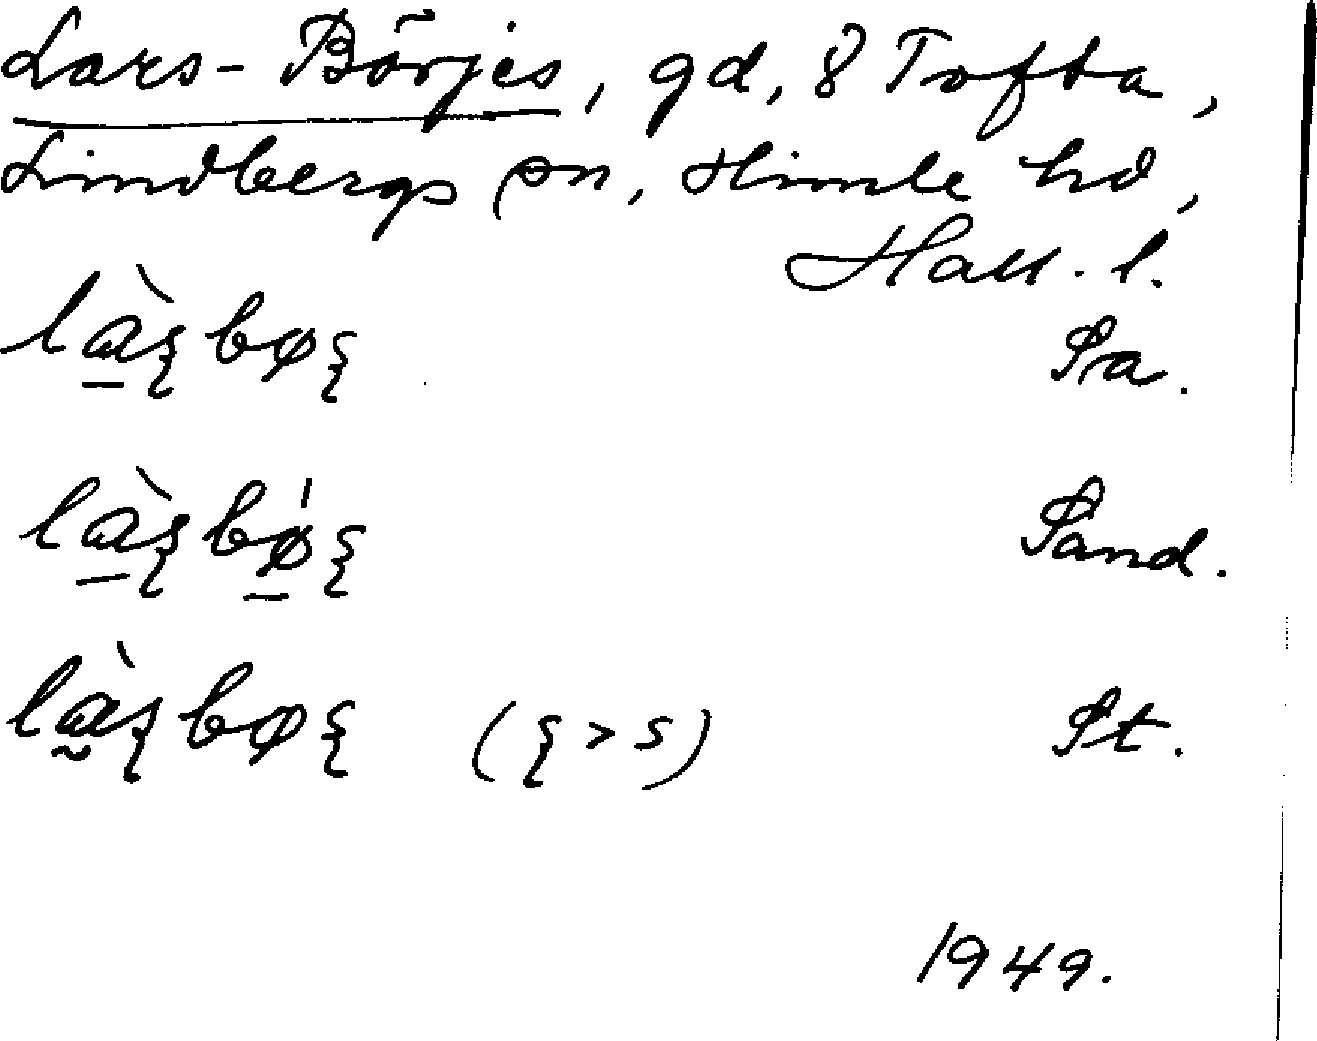 Lars-Börjes, gd, 8 Tofta,
Lindbergs sn, Himle hd,
Hall. l.
là̱ʂbøʂ Sa.
là̱ʂbǿ̱ʂ Sand.
là̰ʂbøʂ (ʂ > s) St.
1949.